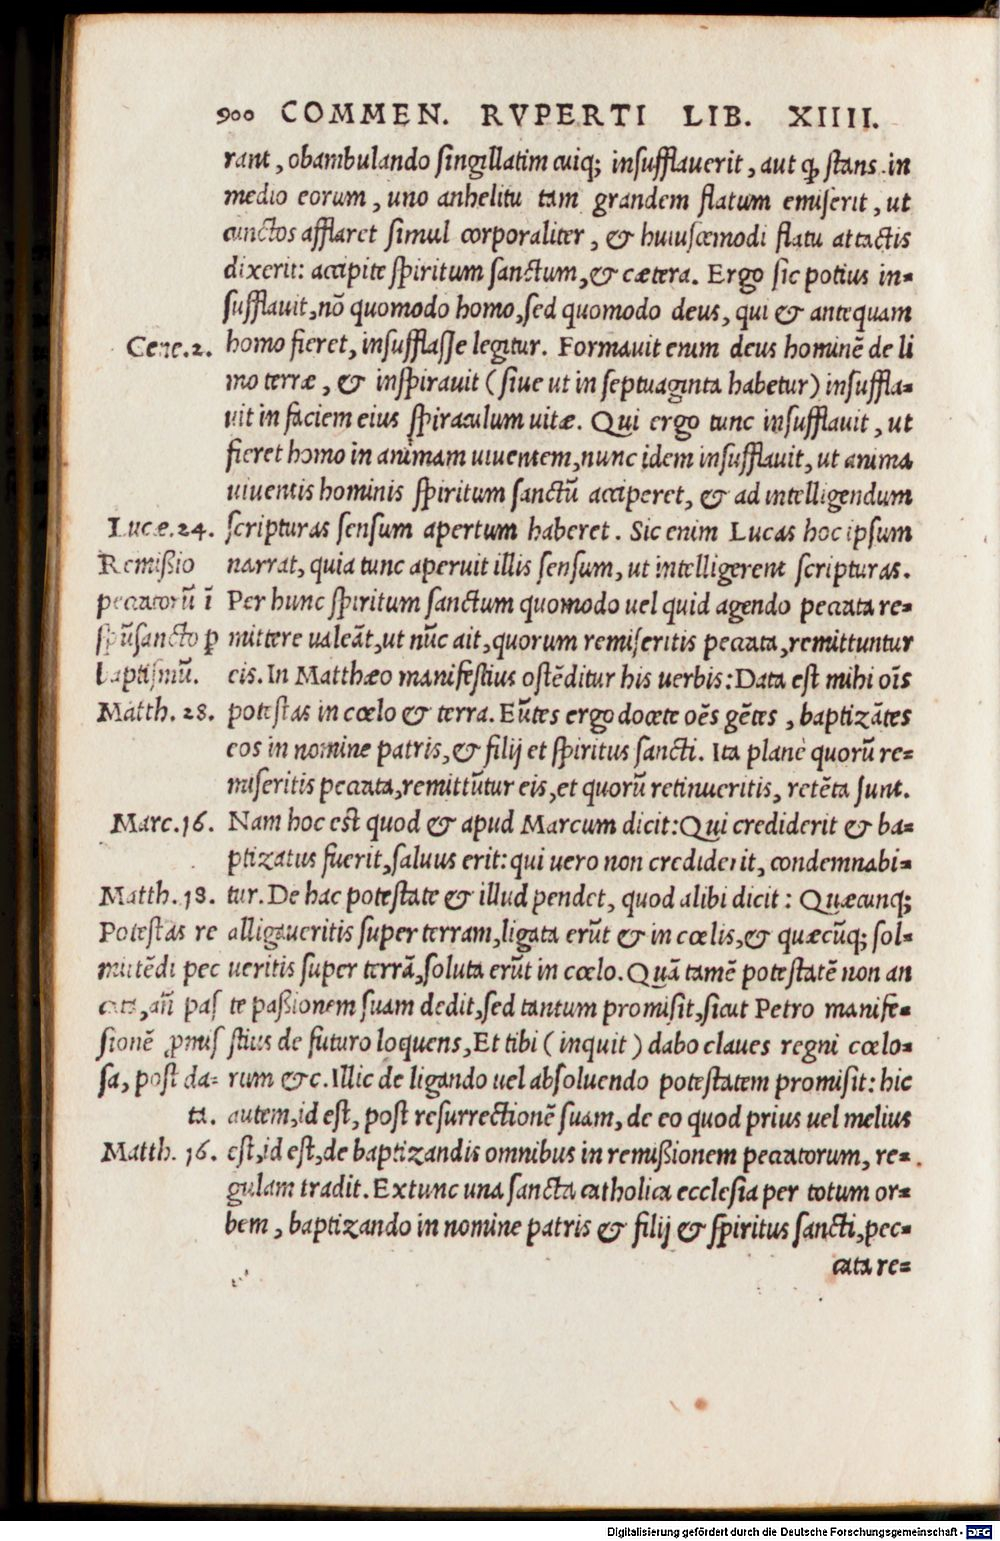 900 COMMEN. RVPERTI LIB. XIIII.
rant, obambulando singillatim cuiq; insufflauerit, aut ꝙ stans in
medio eorum, uno anhelitu tam grandem flatum emiserit, ut
cunctos afflaret simul corporaliter, & huiuscemodi flatu attactis
dixerit: accipite spiritum sanctum, & cætera. Ergo sic potius in=
sufflauit, nō quomodo homo, sed quomodo deus, qui & antequam
Gene.2. homo fieret, insufflasse legitur. Formauit enim deus hominē de li
mo terræ, & inspirauit (siue ut in septuaginta habetur) insuffla=
uit in faciem eius spiraculum uitæ. Qui ergo tunc insufflauit, ut
fieret homo in animam uiuentem, nunc idem insufflauit, ut anima
uiuentis hominis spiritum sanctū acciperet, & ad intelligendum
Lucæ.24. scripturas sensum apertum haberet. Sic enim Lucas hoc ipsum
Remißio narrat, quia tunc aperuit illis sensum, ut intelligerent scripturas.
peccatorū ī Per hunc spiritum sanctum quomodo uel quid agendo peccata re=
spū sancto ꝑ mittere ualeāt, ut nūc ait, quorum remiseritis peccata, remittuntur
baptismū. eis. In Matthæo manifestius ostēditur his uerbis: Data est mihi oīs
Matth. 28. potestas in cœlo & terra. Eūtes ergo docete oēs gētes, baptizātes
eos in nomine patris, & filij et spiritus sancti. Ita planè quorū re=
miseritis peccata, remittūtur eis, et quorū retinueritis, retēta sunt.
Marc.16. Nam hoc est quod & apud Marcum dicit: Qui crediderit & ba=
ptizatus fuerit, saluus erit: qui uero non crediderit, condemnabi=
Matth.18. tur. De hac potestate & illud pendet, quod alibi dicit: Quæcunq;
Potestas re alligaueritis super terram, ligata erūt & in cœlis, & quæcūq; sol=
mittēdi pec ueritis super terrā, soluta erūt in cœlo. Quā tamē potestatē non an
cata, añ pas te paßionem suam dedit, sed tantum promisit, sicut Petro manife=
sionē ꝓmis stius de futuro loquens, Et tibi (inquit) dabo claues regni cœlo=
sa, post da= rum &c. Illic de ligando uel absoluendo potestatem promisit: hic
ta. autem, id est, post resurrectionē suam, de eo quod prius uel melius
Matth. 16. est, id est, de baptizandis omnibus in remißionem peccatorum, re=
gulam tradit. Extunc una sancta catholica ecclesia per totum or=
bem, baptizando in nomine patris & filij & spiritus sancti, pec=
cata re=
Digitalisierung gefördert durch die Deutsche Forschungsgemeinschaft - DFG